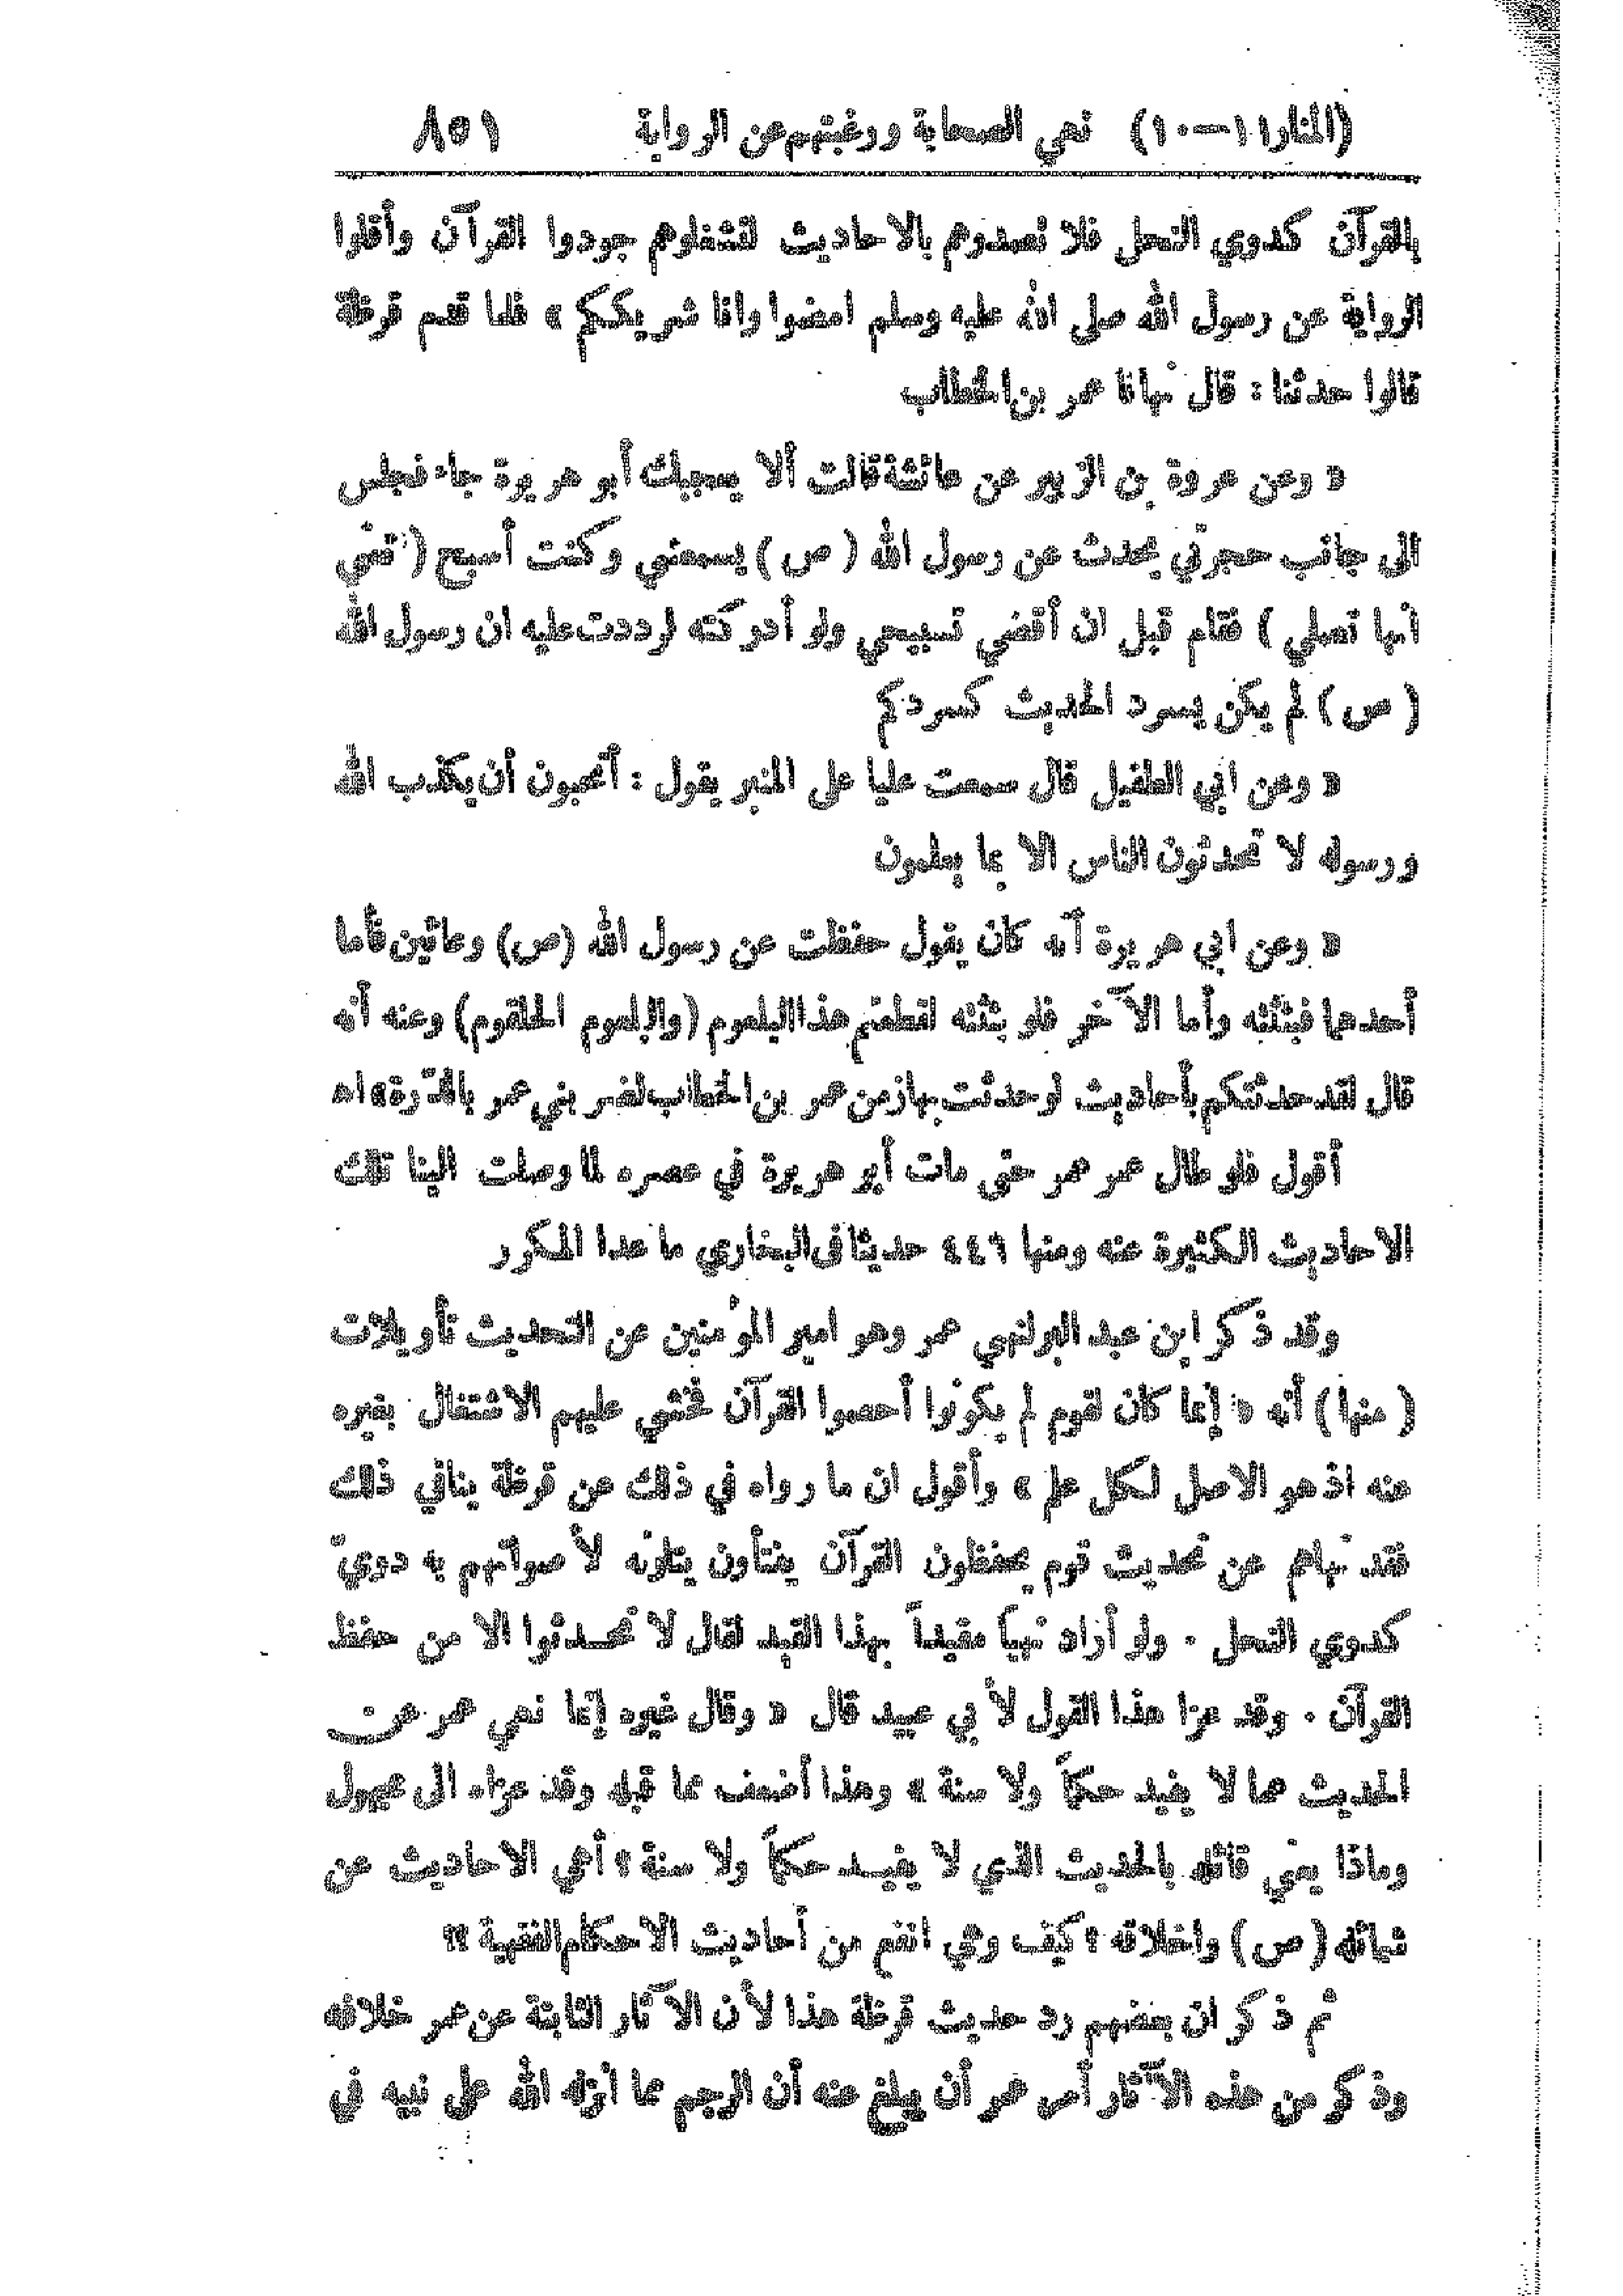 (المنار ١١—١٠) نهي الصحابة ورغبتهم عن الرواية ٨٥١
بالقرآن كدوي النحل فلا تصدوهم بالاحاديث لتشغلوهم جودوا القرآن وأقلوا
الرواية عن رسول الله صلى الله عليه وسلم امضوا وانا شريككم » فلما قدم قرظة
قالوا حدثنا : قال نهانا عمر بن الخطاب
« وعن عروة بن الزبير عن عائشة قالت ألا يعجبك أبو هريرة جاء فجلس
الى جانب حجرتي يحدث عن رسول الله ( ص ) يسمعني وكنت أسبح ( تعني
انها تصلي ) فقام قبل ان أقضي تسبيحي ولو أدركته لرددت عليه ان رسول الله
( ص ) لم يكن يسرد الحديث كسردكم
« وعن ابي الطفيل قال سمعت عليا على المنبر يقول : أتحبون أن يكذب الله
ورسوله لا تحدثون الناس الا بما يعلمون
« وعن ابي هريرة أنه كان يقول حفظت عن رسول الله (ص) وعائين فأما
أحدهما فبثثته وأما الآخر فلو بثثته لقطعتم هذا البلعوم (والبلعوم الحلقوم) وعنه أنه
قال لقد حدثتكم بأحاديث لو حدثت بها زمن عمر بن الخطاب لضربني عمر بالدّرة» اه
أقول فلو طال عمر عمر حتى مات أبو هريرة في عصره لما وصلت الينا تلك
الاحاديث الكثيرة عنه ومنها ٤٤٦ حديثا في البخاري ما عدا المكرر
وقد ذكر ابن عبد البر لنهي عمر وهو امير المؤمنين عن التحديث تأويلات
( منها ) أنه « إنما كان لقوم لم يكونوا أحصوا القرآن فخشي عليهم الاشتغال بغيره
عنه اذ هو الاصل لكل علم » وأقول ان ما رواه في ذلك عن قرظة ينافي ذلك
فقد نهاهم عن تحديث قوم يحفظون القرآن يفتأون يتلونه لأصواتهم به دويّ
كدوي النحل . ولو أراد نهياً مقيداً بهذا القيد لقال لا تحدثوا الا من حفظ
القرآن . وقد عزا هذا القول لأبي عبيد قال « وقال غيره إنما نهى عمر عن
الحديث عما لا يفيد حكماً ولا سنة » وهذا أضعف مما قبله وقد عزاه الى مجهول
وماذا يعني قائله بالحديث الذي لا يفيد حكماً ولا سنة ؟ أهي الاحاديث عن
شمائله (ص) واخلاقه ؟ كيف وهي انفع من أحاديث الاحكام الفقهية ؟؟
ثم ذكر ان بعضهم رد حديث قرظة هذا لأن الآثار الثابتة عن عمر خلافه
وذكر من هذه الآثار أمر عمر أن يبلغ عنه أن الرجم مما انزله الله على نبيه في